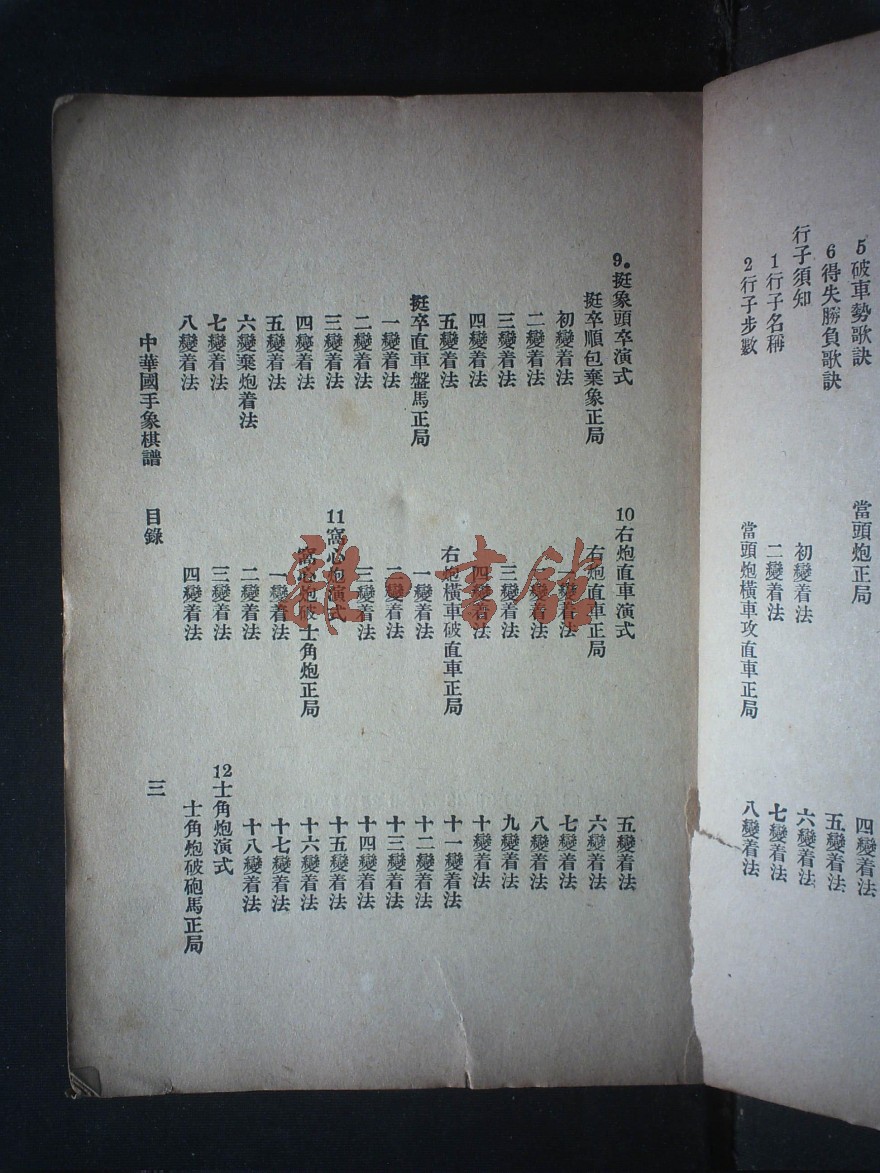 5破車勢歌訣
6得失勝負歌訣
行子須知
1行子名稱
2行子步數
當頭炮正局
初變着法
二變着法
當頭炮橫車攻直車正局
四變着法
五變着法
六變着法
七變着法
八變着法
9。挺象頭卒演式
挺卒順包棄象正局
初變着法
二變着法
三變着法
四變着法
五變着法
挺卒直車盤馬正局
一變着法
二變着法
三變着法
四變着法
五變着法
六變棄炮着法
七變着法
八變着法
10右炮直車演式
右炮直車正局
一變着法
二變着法
三變着法
四變着法
右炮橫車破直車正局
一變着法
二變着法
三變着法
11窩心炮演式
窩心炮破士角炮正局
一變着法
二變着法
三變着法
四變着法
五變着法
六變着法
七變着法
八變着法
九變着法
十變着法
十一變着法
十二變着法
十三變着法
十四變着法
十五變着法
十六變着法
十七變着法
十八變着法
12士角炮演式
士角炮破砲馬正局
中華國手象棋譜 目錄 三
雜·書館